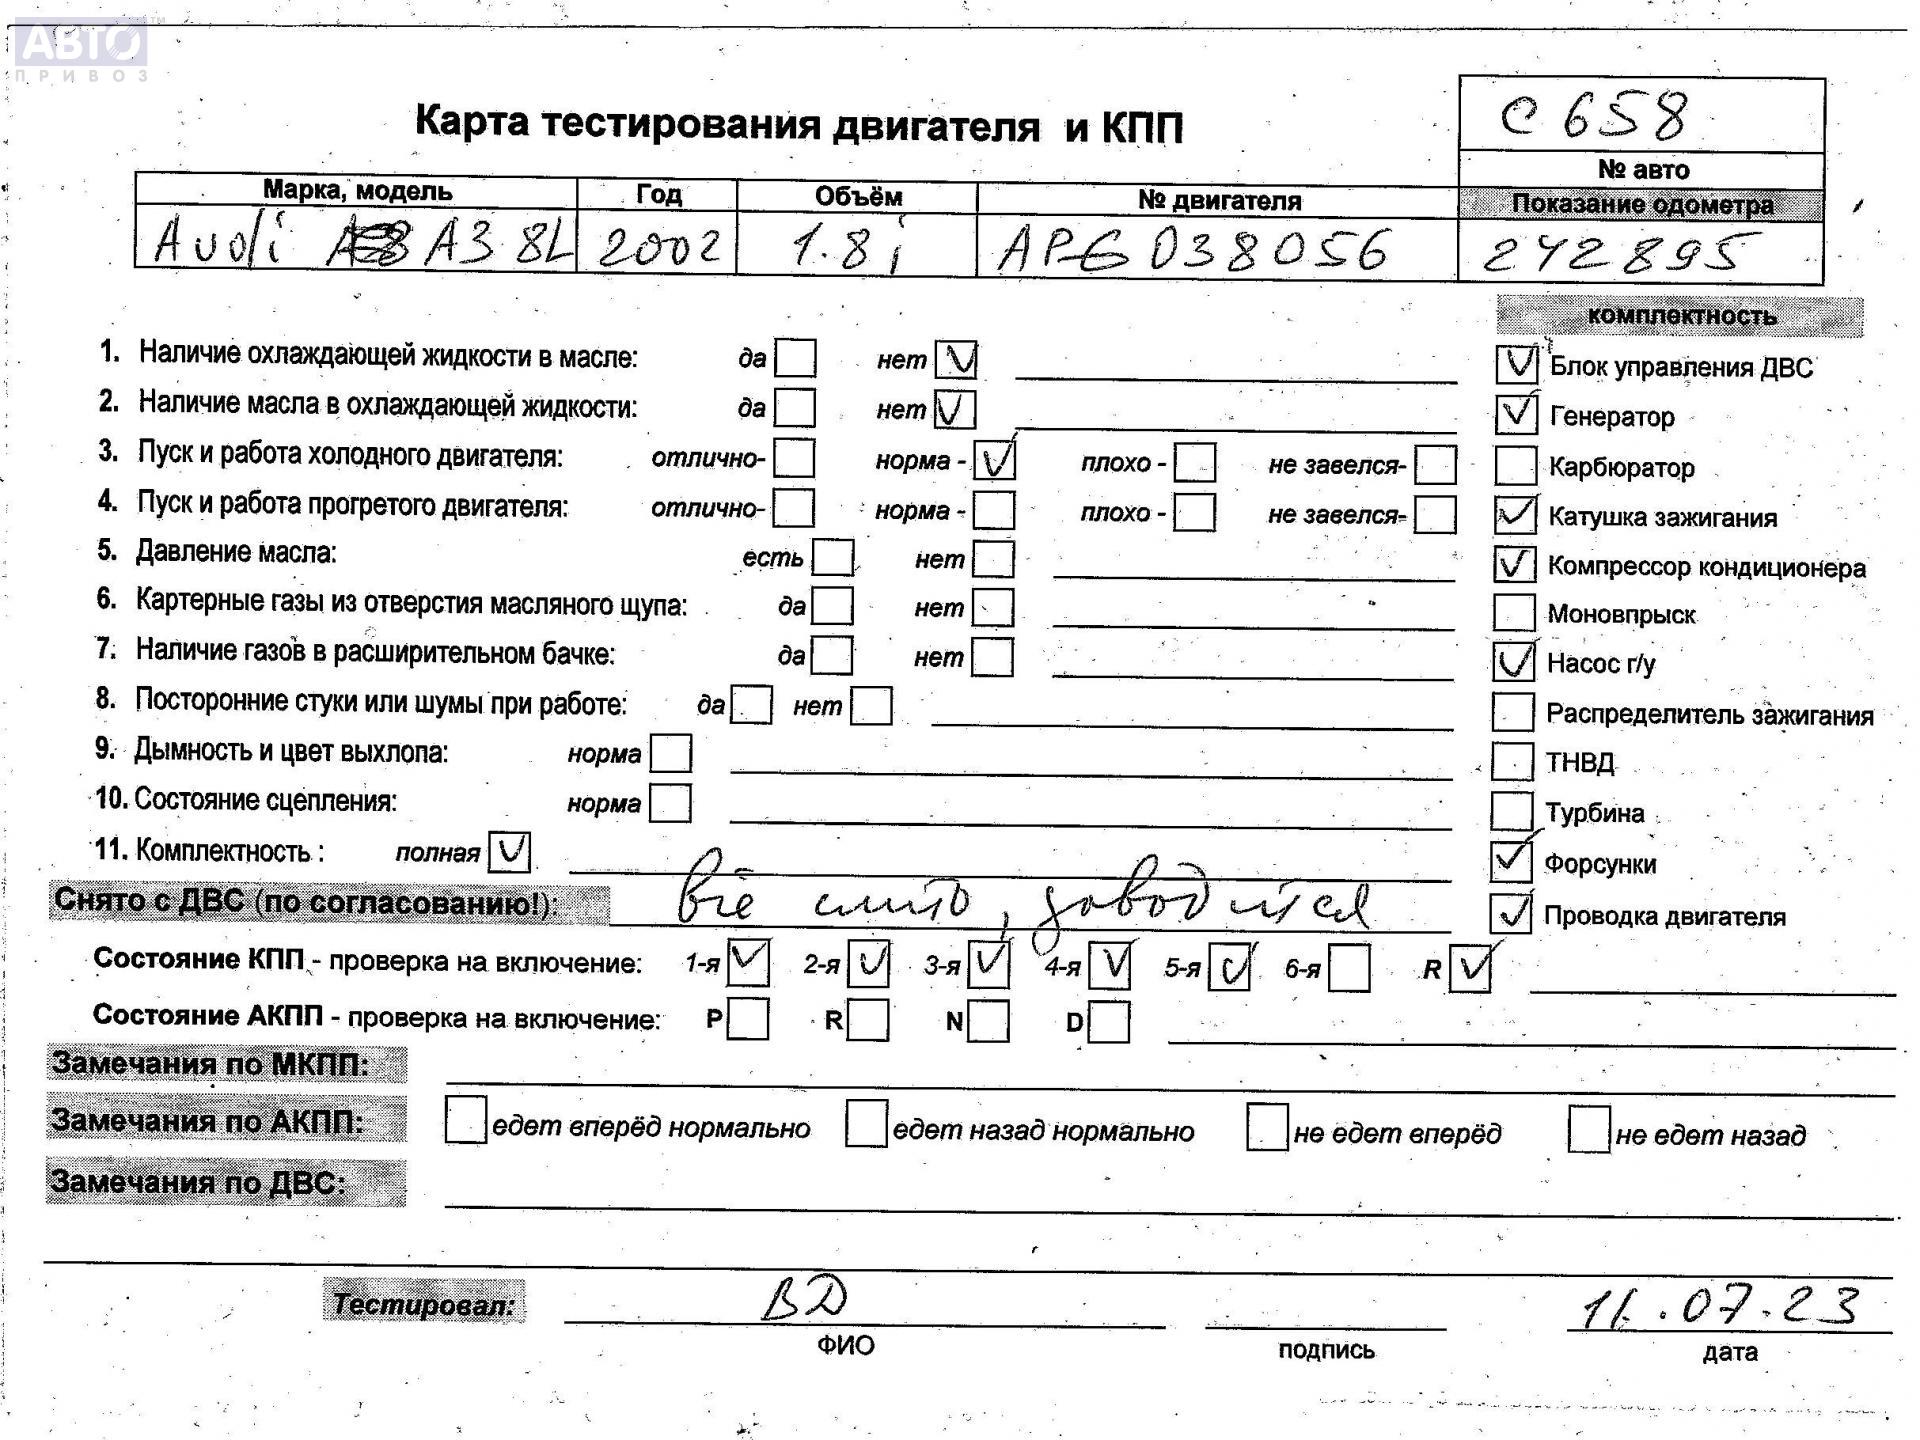 АВТО
ПРИВОЗ
Карта тестирования двигателя и КПП
С 658
№ авто
Марка, модель Год Объём № двигателя Показание одометра
Audi A3 8L 2002 1.8 i APG 038056 242895
комплектность
1. Наличие охлаждающей жидкости в масле: да нет ✓
2. Наличие масла в охлаждающей жидкости: да нет ✓
3. Пуск и работа холодного двигателя: отлично- норма - ✓ плохо - не завелся-
4. Пуск и работа прогретого двигателя: отлично- норма - плохо - не завелся-
5. Давление масла: есть нет
6. Картерные газы из отверстия масляного щупа: да нет
7. Наличие газов в расширительном бачке: да нет
8. Посторонние стуки или шумы при работе: да нет
9. Дымность и цвет выхлопа: норма
10. Состояние сцепления: норма
11. Комплектность : полная ✓
✓ Блок управления ДВС
✓ Генератор
Карбюратор
✓ Катушка зажигания
✓ Компрессор кондиционера
Моновпрыск
✓ Насос г/у
Распределитель зажигания
ТНВД
Турбина
✓ Форсунки
✓ Проводка двигателя
Снято с ДВС (по согласованию!): всё слито, заводится
Состояние КПП - проверка на включение: 1-я ✓ 2-я ✓ 3-я ✓ 4-я ✓ 5-я ✓ 6-я R ✓
Состояние АКПП - проверка на включение: P R N D
Замечания по МКПП:
Замечания по АКПП: едет вперёд нормально едет назад нормально не едет вперёд не едет назад
Замечания по ДВС:
Тестировал: ВД 11.07.23
ФИО подпись дата